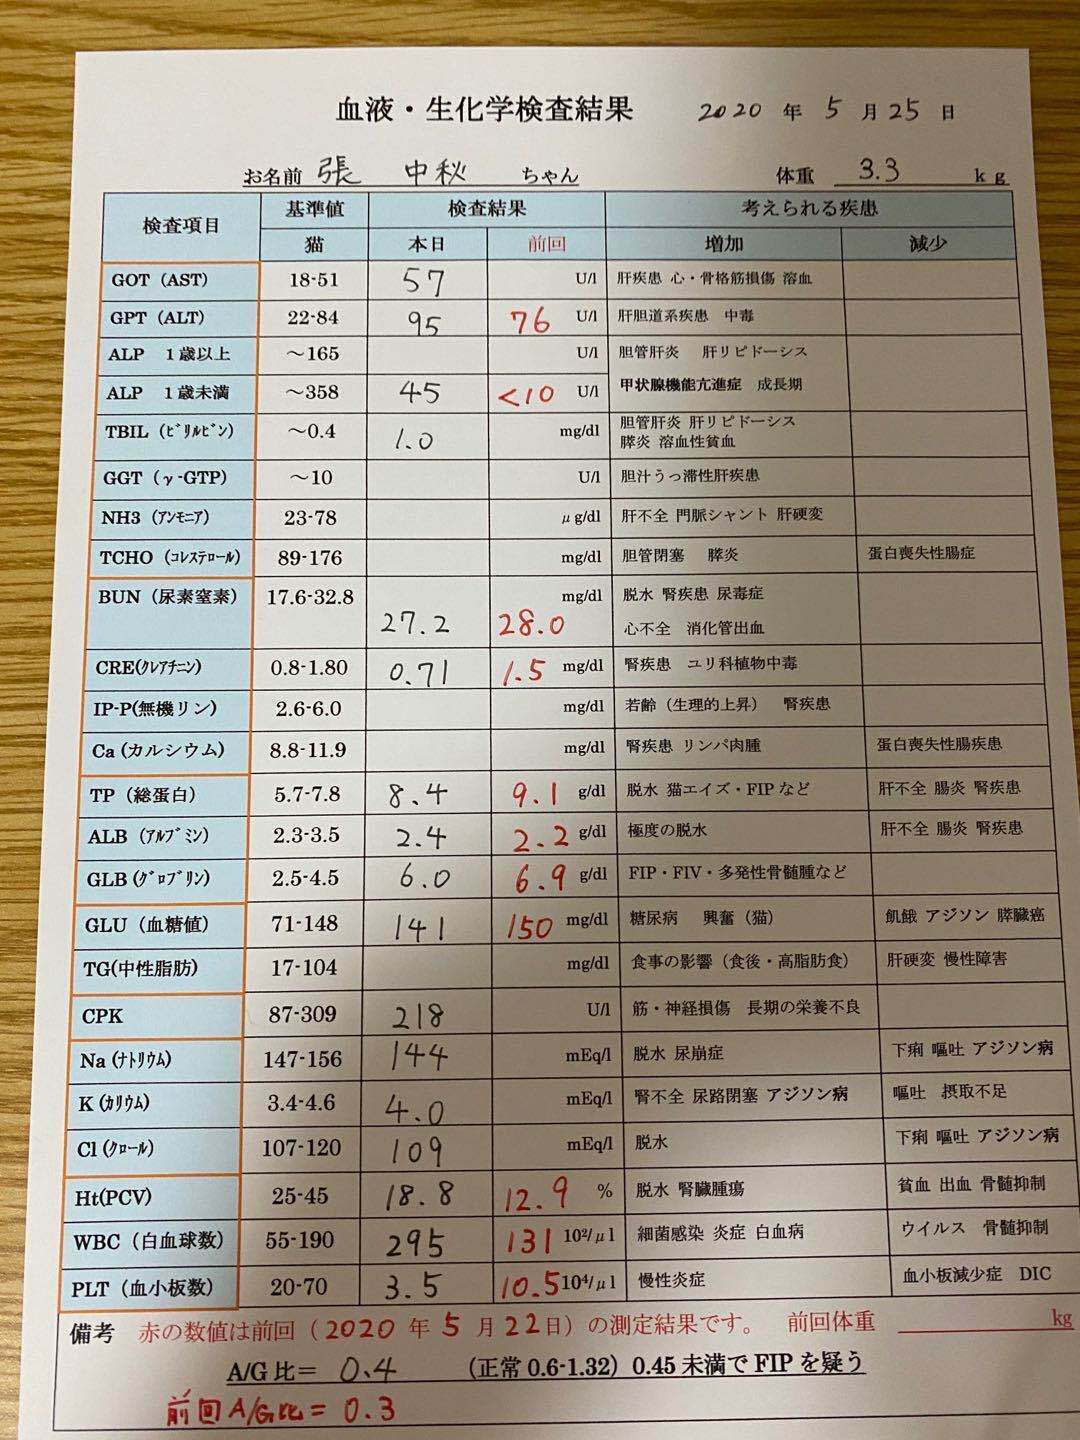 血液・生化学検査結果 2020 年 5 月 25 日
お名前 張 中秋 ちゃん 体重 3.3 kg
検査項目 基準値 検査結果 考えられる疾患
猫 本日 前回 増加 減少
GOT（AST） 18-51 57 U/l 肝疾患 心・骨格筋損傷 溶血
GPT（ALT） 22-84 95 76 U/l 肝胆道系疾患 中毒
ALP 1歳以上 ～165 U/l 胆管肝炎 肝リピドーシス
ALP 1歳未満 ～358 45 <10 U/l 甲状腺機能亢進症 成長期
TBIL（ﾋﾞﾘﾙﾋﾞﾝ） ～0.4 1.0 mg/dl 胆管肝炎 肝リピドーシス
膵炎 溶血性貧血
GGT（γ-GTP） ～10 U/l 胆汁うっ滞性肝疾患
NH3（ｱﾝﾓﾆｱ） 23-78 μg/dl 肝不全 門脈シャント 肝硬変
TCHO（ｺﾚｽﾃﾛｰﾙ） 89-176 mg/dl 胆管閉塞 膵炎 蛋白喪失性腸症
BUN（尿素窒素） 17.6-32.8 27.2 28.0 mg/dl 脱水 腎疾患 尿毒症
心不全 消化管出血
CRE(ｸﾚｱﾁﾆﾝ) 0.8-1.80 0.71 1.5 mg/dl 腎疾患 ユリ科植物中毒
IP-P(無機リン) 2.6-6.0 mg/dl 若齢（生理的上昇） 腎疾患
Ca(カルシウム) 8.8-11.9 mg/dl 腎疾患 リンパ肉腫 蛋白喪失性腸疾患
TP（総蛋白） 5.7-7.8 8.4 9.1 g/dl 脱水 猫エイズ・FIPなど 肝不全 腸炎 腎疾患
ALB（ｱﾙﾌﾞﾐﾝ） 2.3-3.5 2.4 2.2 g/dl 極度の脱水 肝不全 腸炎 腎疾患
GLB(ｸﾞﾛﾌﾞﾘﾝ) 2.5-4.5 6.0 6.9 g/dl FIP・FIV・多発性骨髄腫など
GLU（血糖値） 71-148 141 150 mg/dl 糖尿病 興奮（猫） 飢餓 アジソン 膵臓癌
TG(中性脂肪) 17-104 mg/dl 食事の影響（食後・高脂肪食） 肝硬変 慢性障害
CPK 87-309 218 U/l 筋・神経損傷 長期の栄養不良
Na(ﾅﾄﾘｳﾑ) 147-156 144 mEq/l 脱水 尿崩症 下痢 嘔吐 アジソン病
K(ｶﾘｳﾑ) 3.4-4.6 4.0 mEq/l 腎不全 尿路閉塞 アジソン病 嘔吐 摂取不足
Cl(ｸﾛｰﾙ) 107-120 109 mEq/l 脱水 下痢 嘔吐 アジソン病
Ht(PCV) 25-45 18.8 12.9 % 脱水 腎臓腫瘍 貧血 出血 骨髄抑制
WBC（白血球数） 55-190 295 131 10²/μl 細菌感染 炎症 白血病 ウイルス 骨髄抑制
PLT（血小板数） 20-70 3.5 10.5 10⁴/μl 慢性炎症 血小板減少症 DIC
備考 赤の数値は前回（2020 年 5 月 22日）の測定結果です。 前回体重 kg
A/G 比＝ 0.4 （正常 0.6-1.32）0.45 未満で FIP を疑う
前回 A/G比 = 0.3